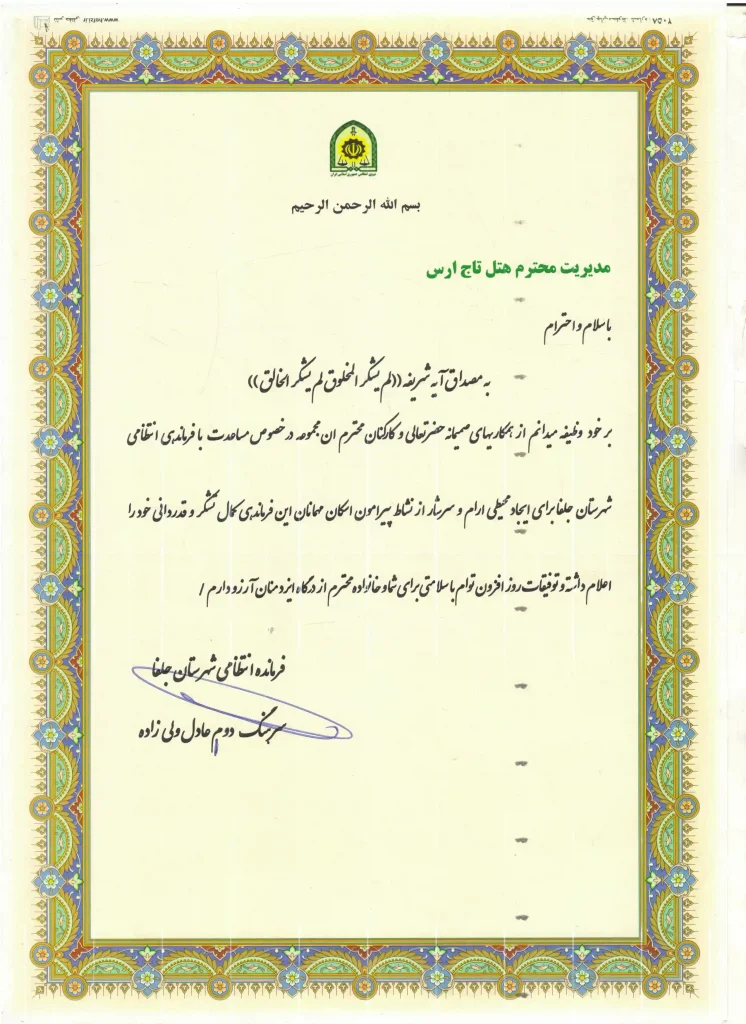 بسم الله الرحمن الرحیم
مدیریت محترم هتل تاج ارس
باسلام و احترام
به مصداق آیه شریفه ((لم یشکر المخلوق لم یشکر الخالق))
بر خود وظیفه میدانم از همکاریهای صمیمانه حضرتعالی و کارکنان محترم ان مجموعه در خصوص مساعدت با فرماندهی انتظامی
شهرستان جلفا برای ایجاد محیطی ارام و سرشار از نشاط پیرامون اسکان مهمانان این فرماندهی کمال تشکر و قدردانی خود را
اعلام داشته و توفیقات روز افزون توام با سلامتی برای شما و خانواده محترم از درگاه ایزد منان آرزو دارم /
فرمانده انتظامی شهرستان جلفا
سرهنگ دوم عادل ولی زاده
www.hefzi.ir